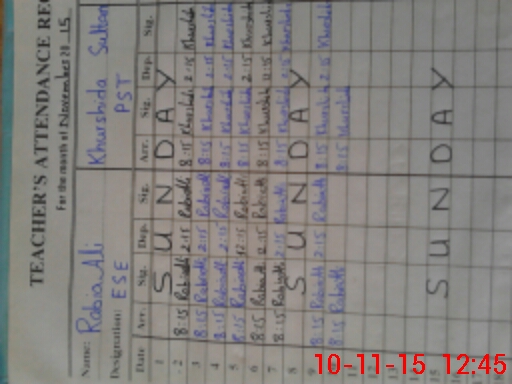 TEACHER'S ATTENDANCE RE
For the month of November 2015
Name: Rabia Ali Khurshida Sultan
Designation: ESE PST
Date Arr. Sig. Dep. Sig. Arr. Sig. Dep. Sig.
1 SUNDAY
2 8:15 Rabiaali 2:15 Rabiaali 8:15 Khurshid 2:15 Khurshid
3 8:15 Rabiaali 2:15 Rabiaali 8:15 Khurshid 2:15 Khurshid
4 8:15 Rabiaali 2:15 Rabiaali 8:15 Khurshid 2:15 Khurshid
5 8:15 Rabiaali 12:15 Rabiaali 8:15 Khurshid 2:15 Khurshid
6 8:15 Rabiaali 12:15 Rabiaali 8:15 Khurshid 12:15 Khurshid
7 8:15 Rabiaali 2:15 Rabiaali 8:15 Khurshid 2:15 Khurshid
8 SUNDAY
9 8:15 Rabiaali 2:15 Rabiaali 8:15 Khurshid 2:15 Khurshid
10 8:15 Rabiaali 8:15 Khurshid
11
12
13
14
15 SUNDAY
16
17
18
10-11-15 12:45